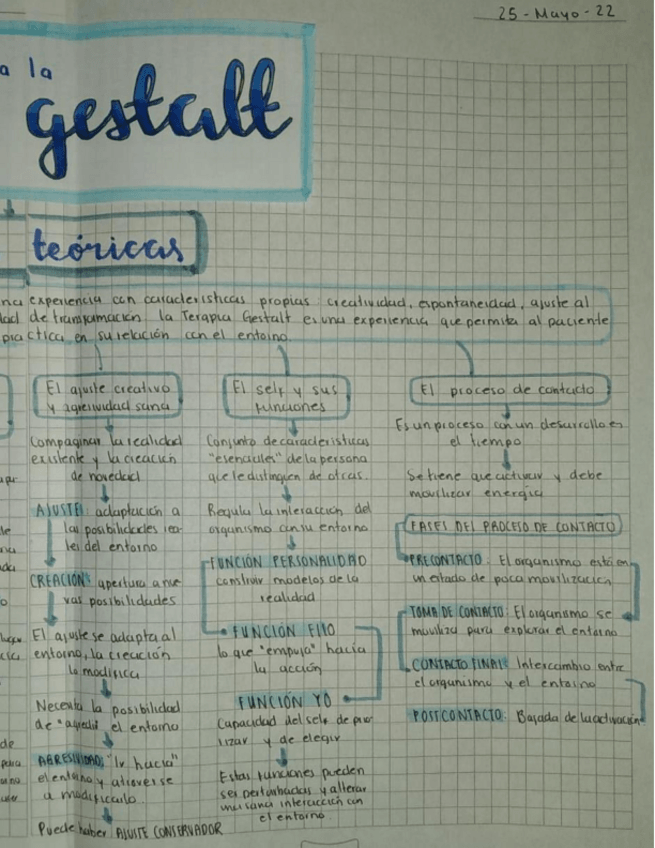 25 - Mayo - 22
a la
gestalt
teóricas
na experiencia con características propias: creatividad, espontaneidad, ajuste al
dad de transformación la Terapia Gestalt es una experiencia que permita al paciente
practica en su relación con el entorno.
El ajuste creativo
y agresividad sana
Compaginar la realidad
existente y la creación
de novedad
AJUSTE: adaptación a
las posibilidades rea-
les del entorno
CREACIÓN: apertura a nue
vas posibilidades
El ajuste se adapta al
entorno, la creación
lo modifica
Necesita la posibilidad
de "agredir" el entorno
AGRESIVIDAD: "Ir hacia"
el entorno y atreverse
a modificarlo.
Puede haber AJUSTE CONSERVADOR
El self y sus
funciones
Conjunto de características
"esenciales" de la persona
que le distinguen de otras.
Regula la interacción del
organismo con su entorno
FUNCIÓN PERSONALIDAD
construir modelos de la
realidad
FUNCIÓN ELLO
lo que "empuja" hacia
la acción
FUNCIÓN YO
Capacidad del self de prior
izar y de elegir
Estas funciones pueden
ser perturbadas y alterar
una sana interacción con
el entorno.
El proceso de contacto
Es un proceso con un desarrollo en
el tiempo
Se tiene que activar y debe
movilizar energía
FASES DEL PROCESO DE CONTACTO
PRECONTACTO: El organismo está en
un estado de poca movilización
TOMA DE CONTACTO: El organismo se
moviliza para explorar el entorno
CONTACTO FINAL: Intercambio entre
el organismo y el entorno
POSTCONTACTO: Bajada de la activación